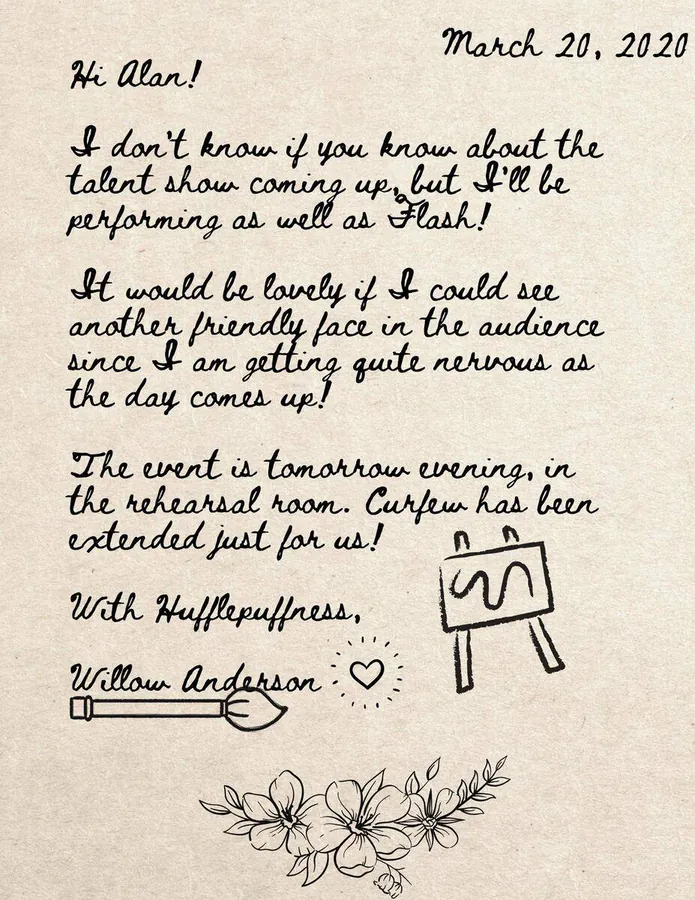 March 20, 2020
Hi Alan!
I don't know if you know about the
talent show coming up, but I'll be
performing as well as Flash!
It would be lovely if I could see
another friendly face in the audience
since I am getting quite nervous as
the day comes up!
The event is tomorrow evening, in
the rehearsal room. Curfew has been
extended just for us!
With Hufflepuffness,
Willow Anderson